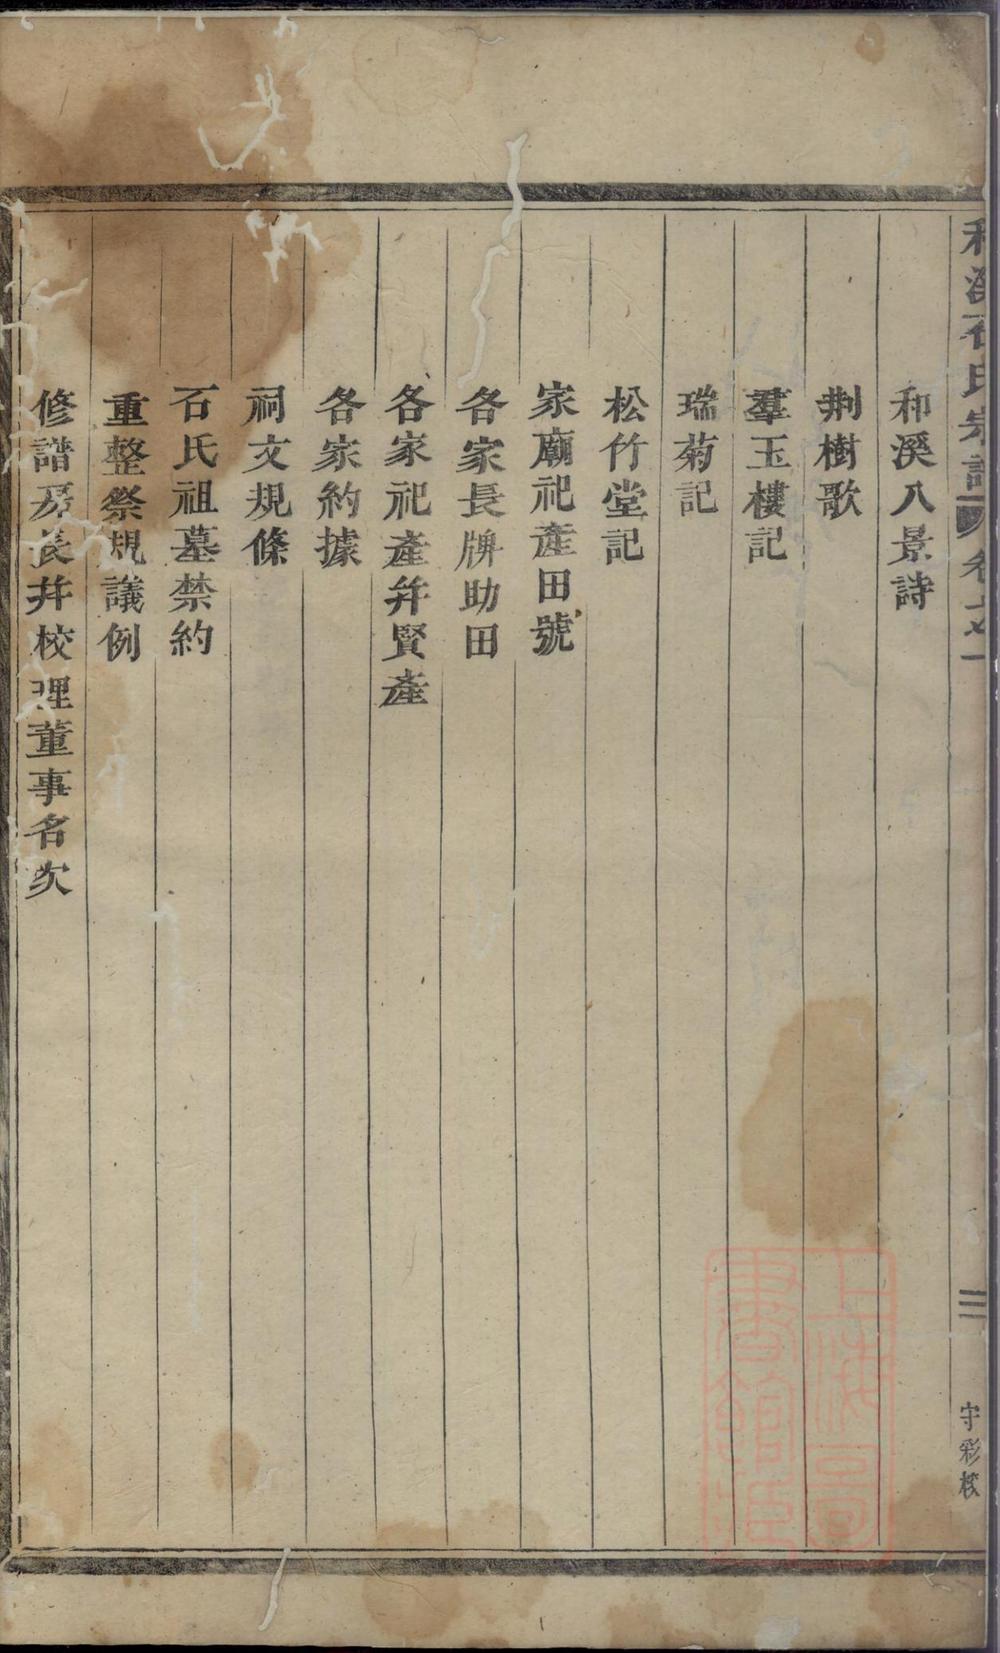 和溪石氏宗譜 卷之一
三
宇彩校
和溪八景詩
荆樹歌
羣玉樓記
瑞菊記
松竹堂記
家廟祀產田號
各家長牌助田
各家祀產并賢產
各家約據
祠文規條
石氏祖墓禁約
重整祭規議例
修譜房長并校理董事名次
上海圖書館藏